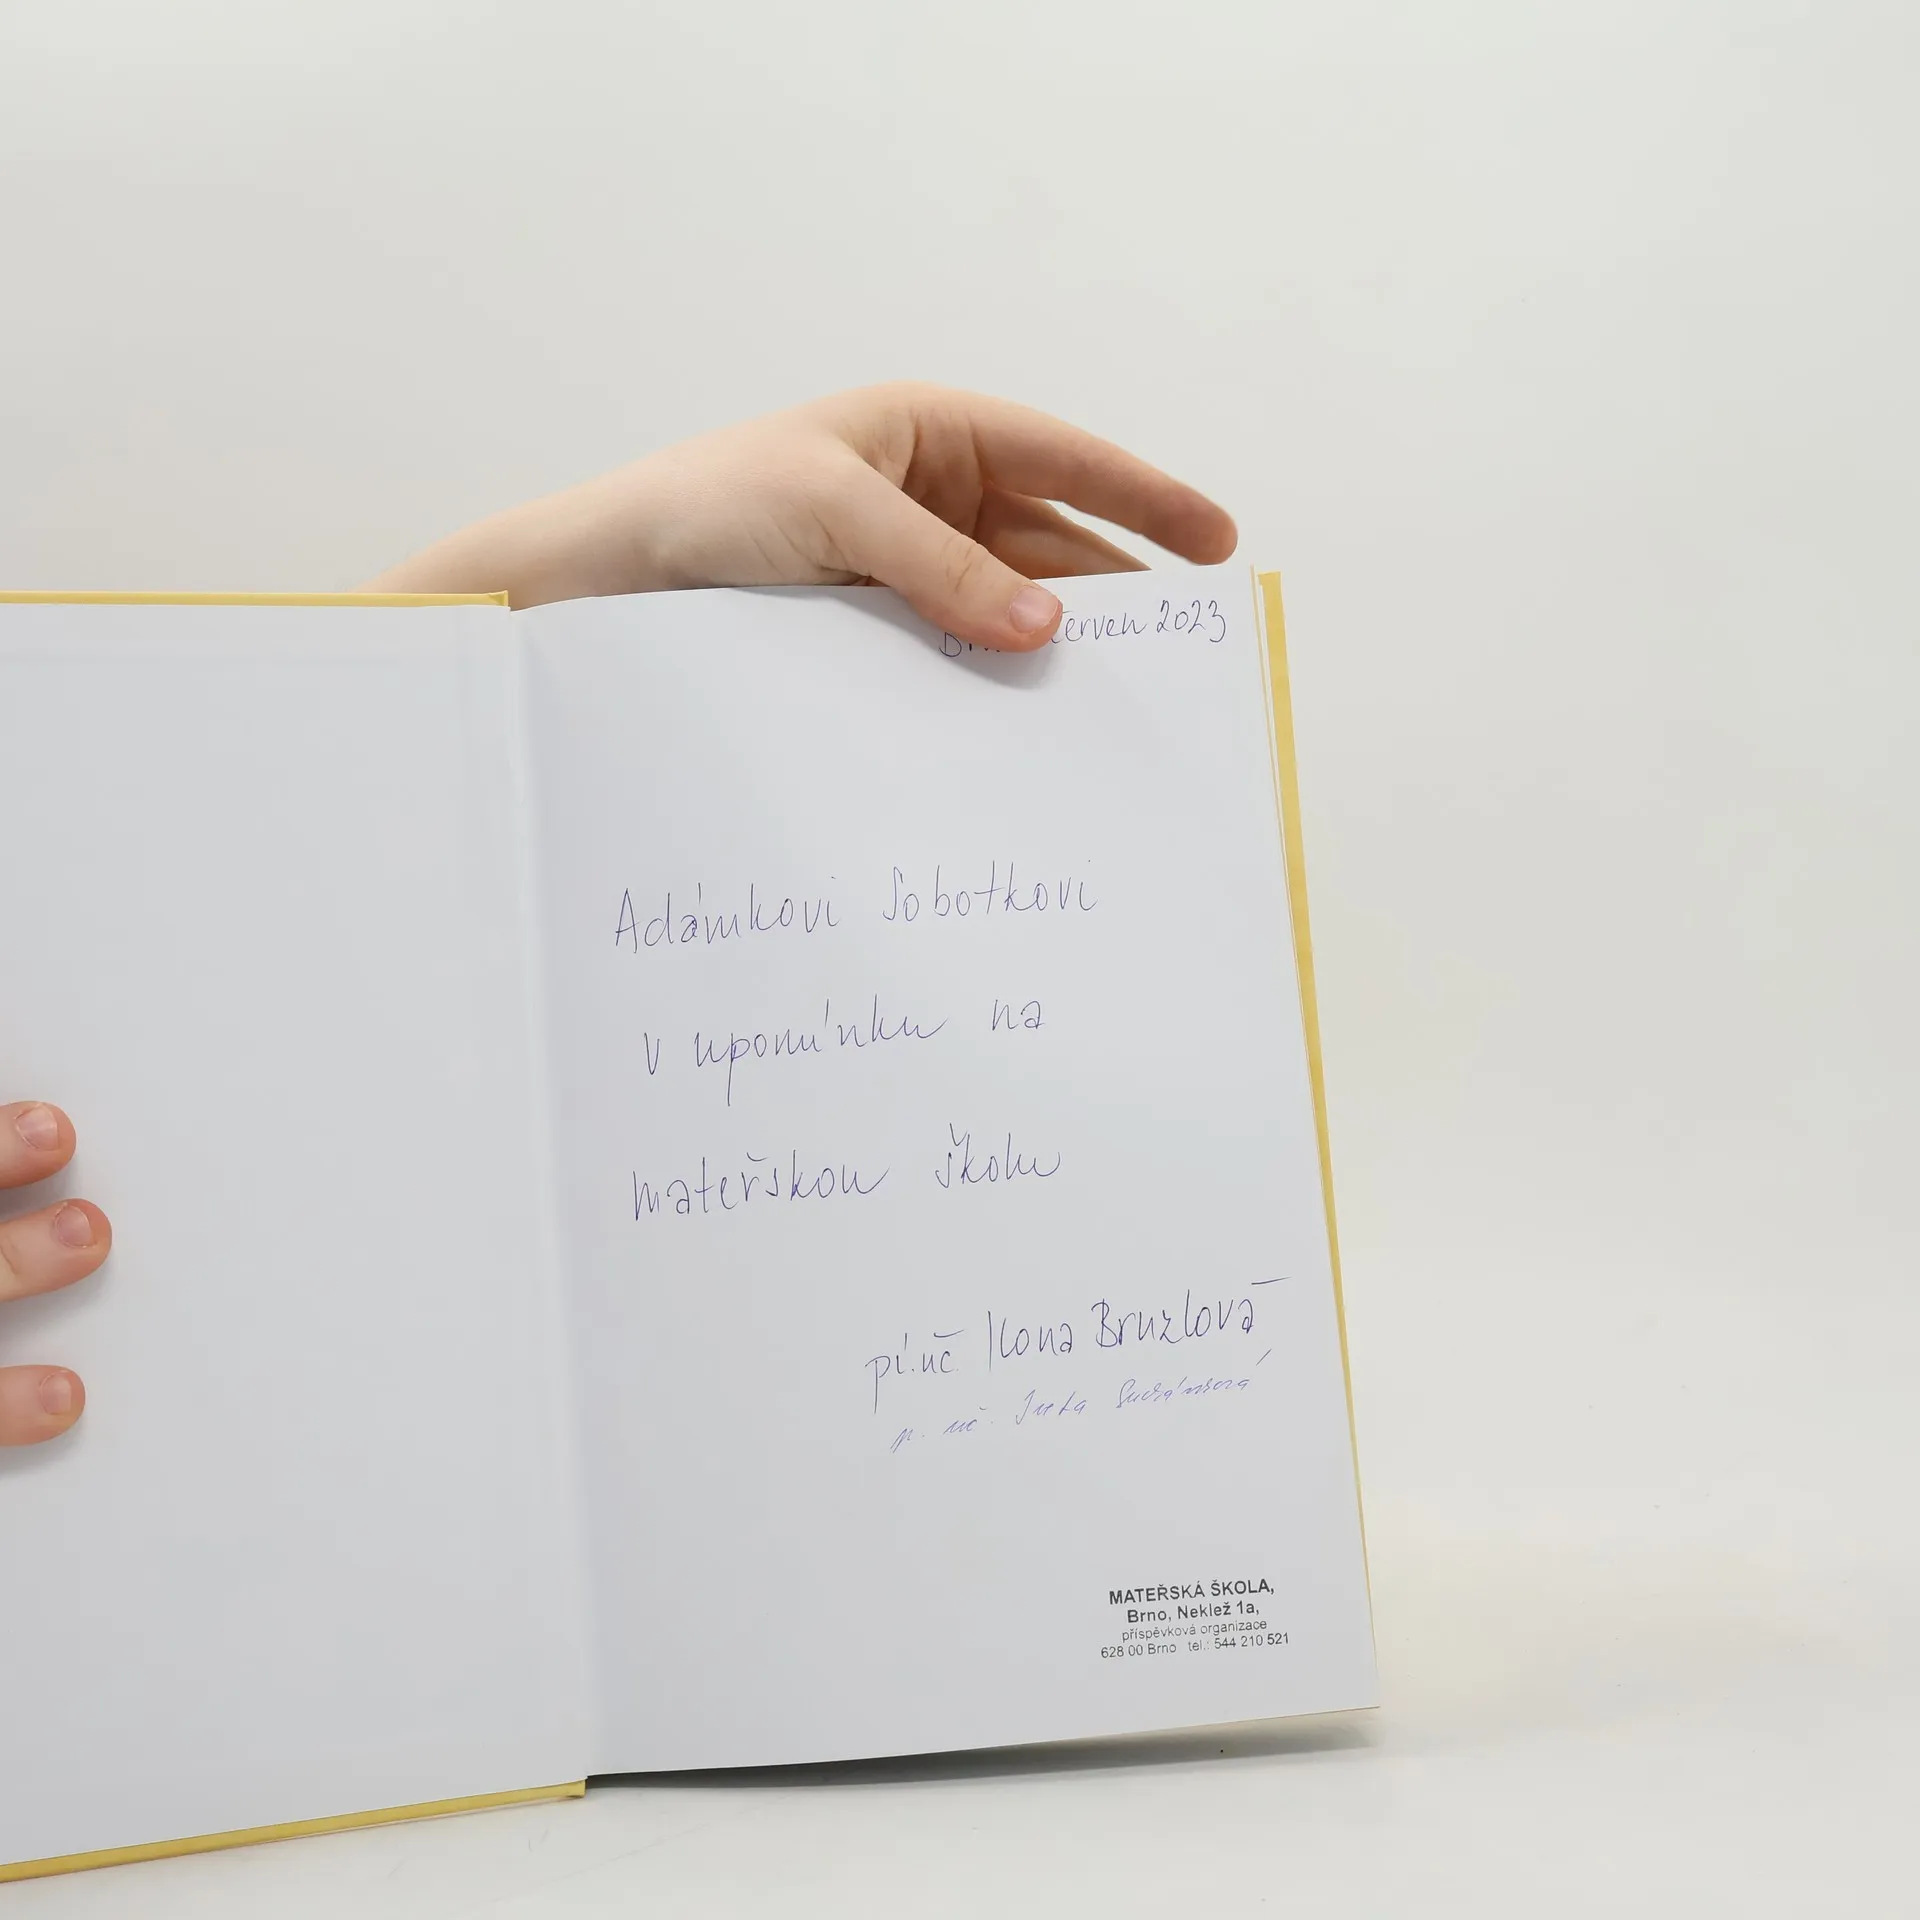 červen 2023
Adámkovi Sobotkovi
v upomínku na
mateřskou školu
pí.uč. Ilona Bruzlová
p. uč. Iveta
MATEŘSKÁ ŠKOLA,
Brno, Neklež 1a,
příspěvková organizace
628 00 Brno tel.: 544 210 521